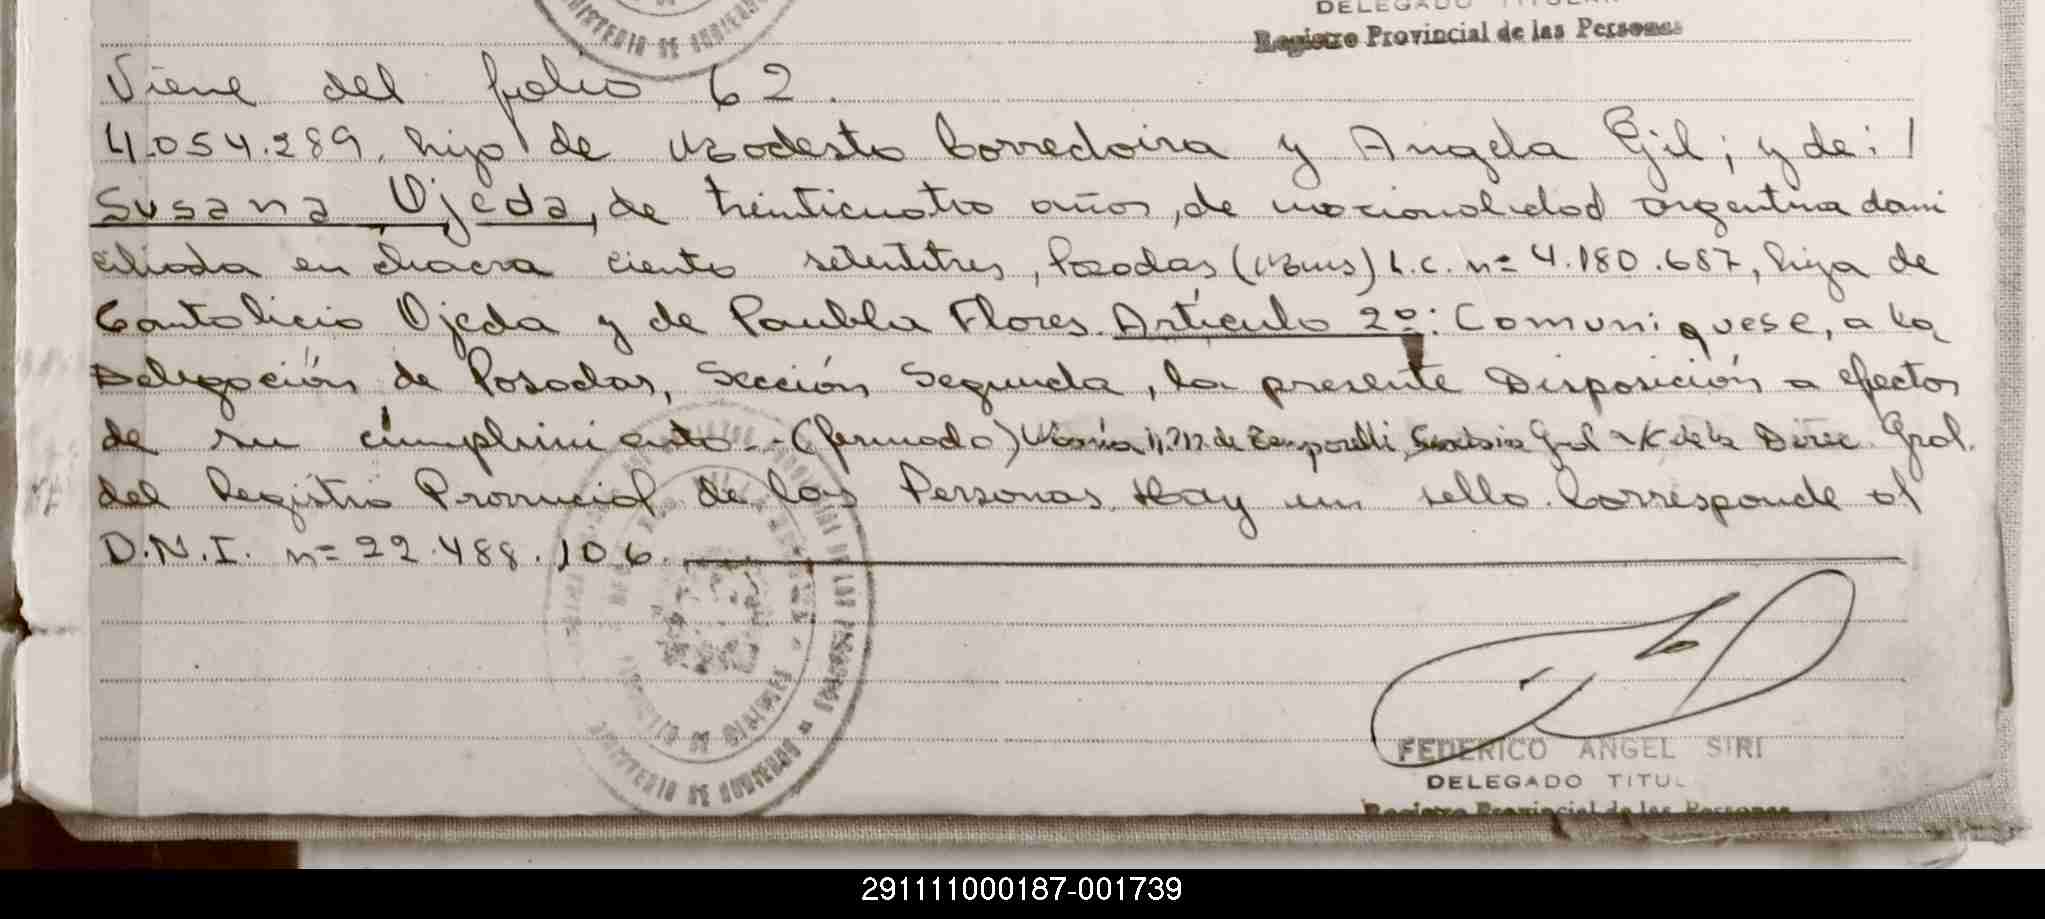 MINISTERIO DE GOBIERNO
DELEGADO TITULAR
Registro Provincial de las Personas
Viene del folio 62.
4.054.289, hijo de Modesto Corredoira y Angela Gil; y de: /
Susana Ojeda, de treinticuatro años, de nacionalidad argentina domi
ciliada en chacra ciento setentitres, Posadas (Mnes) L.C. nº 4.180.687, hija de
Cantolicio Ojeda y de Paubla Flores. Artículo 2º: Comuniquese, a la
Delegación de Posadas, Sección Segunda, la presente Disposición a efectos
de su cumplimiento.- (firmado) María de Zamporelli, Secretaria Gral A/C de la Direc. Gral.
del Registro Provincial de las Personas. Hay un sello. Corresponde al
D.N.I. nº 22.488.106.
DE LAS PERSONAS
MINISTERIO DE GOBIERNO
FEDERICO ANGEL SIRI
DELEGADO TITUL
Registro Provincial de las Personas
291111000187-001739